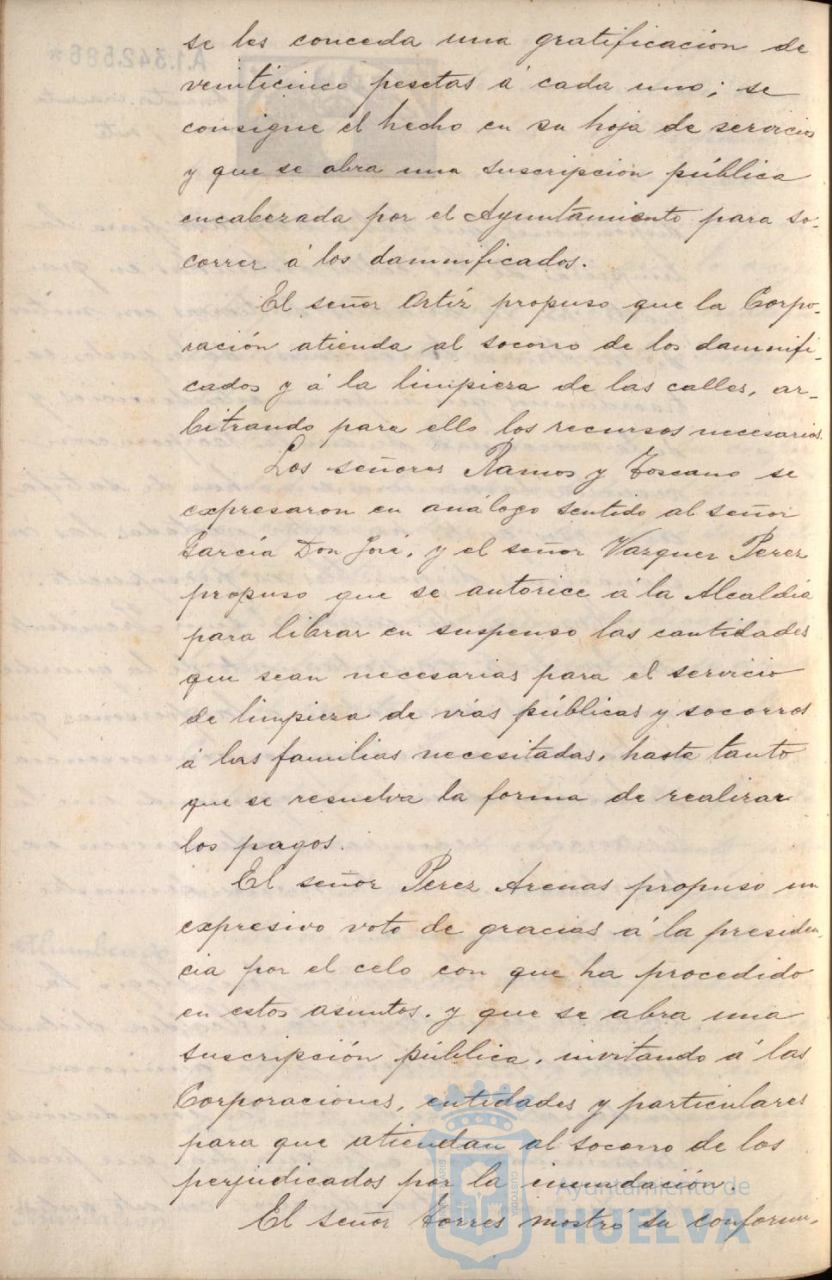 se les conceda una gratificación de
veinticinco pesetas á cada uno; se
consigne el hecho en su hoja de servicios
y que se abra una suscripción pública
encabezada por el Ayuntamiento para so-
correr á los damnificados.
El señor Ortíz propuso que la Corpo-
ración atienda al socorro de los damnifi-
cados y á la limpieza de las calles, ar-
bitrando para ello los recursos necesarios.
Los señores Ramos y Toscano se
expresaron en análogo sentido al señor
García Don José, y el señor Vazquez Perez
propuso que se autorice á la Alcaldía
para librar en suspenso las cantidades
que sean necesarias para el servicio
de limpieza de vías públicas y socorros
á las familias necesitadas, hasta tanto
que se resuelva la forma de realizar
los pagos.
El señor Perez Arenas propuso un
expresivo voto de gracias á la presiden-
cia por el celo con que ha procedido
en estos asuntos, y que se abra una
suscripción pública, invitando á las
Corporaciones, entidades y particulares
para que atiendan al socorro de los
perjudicados por la inundación.
El señor Torres mostró su conformi-
Ayuntamiento de
HUELVA